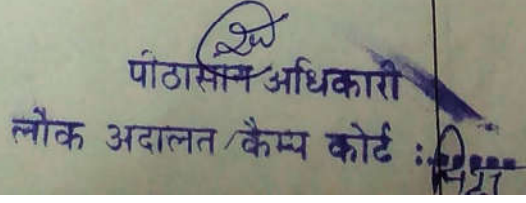 पीठासीन अधिकारी
लोक अदालत/कैम्प कोर्ट :